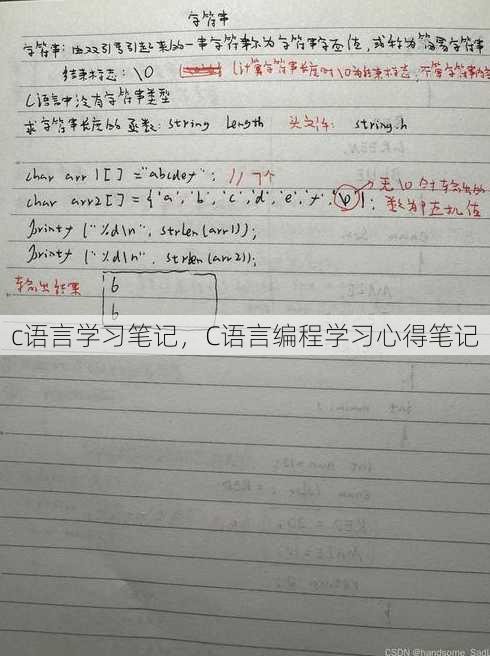 字符串
字符串：由双引号引起来的一串字符称为字符串字面值，或称为简易字符串
结束标志：\0 （计算字符串长度时\0为结束标志，不算字符串内容
C语言中没有字符串类型
求字符串长度的函数：string length 头文件：string.h
char arr1[] = "abcdef"； //7个
char arr2[] = {'a', 'b', 'c', 'd', 'e', 'f', '\0'}；
无\0时输出的
数为随机值
printf ("%d\n", strlen(arr1));
printf ("%d\n", strlen(arr2));
输出结果 6
6
c语言学习笔记，C语言编程学习心得笔记
CSDN @handsome_Sadi